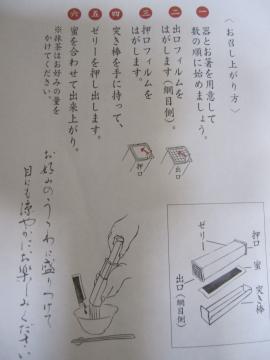 〈お召し上がり方〉
一 器とお箸を用意して
数の順に始めましょう。
二 出口フィルムを
はがします(網目側)。
三 押口フィルムを
はがします。
四 突き棒を手に持って、
五 ゼリーを押し出します。
六 蜜を合わせて出来上り。
※抹茶はお好みの量を
かけてください。
押口
出口
お好みのうつわに盛りつけて
目にも涼やかにお楽しみください
押口
蜜
突き棒
ゼリー
出口(網目側)